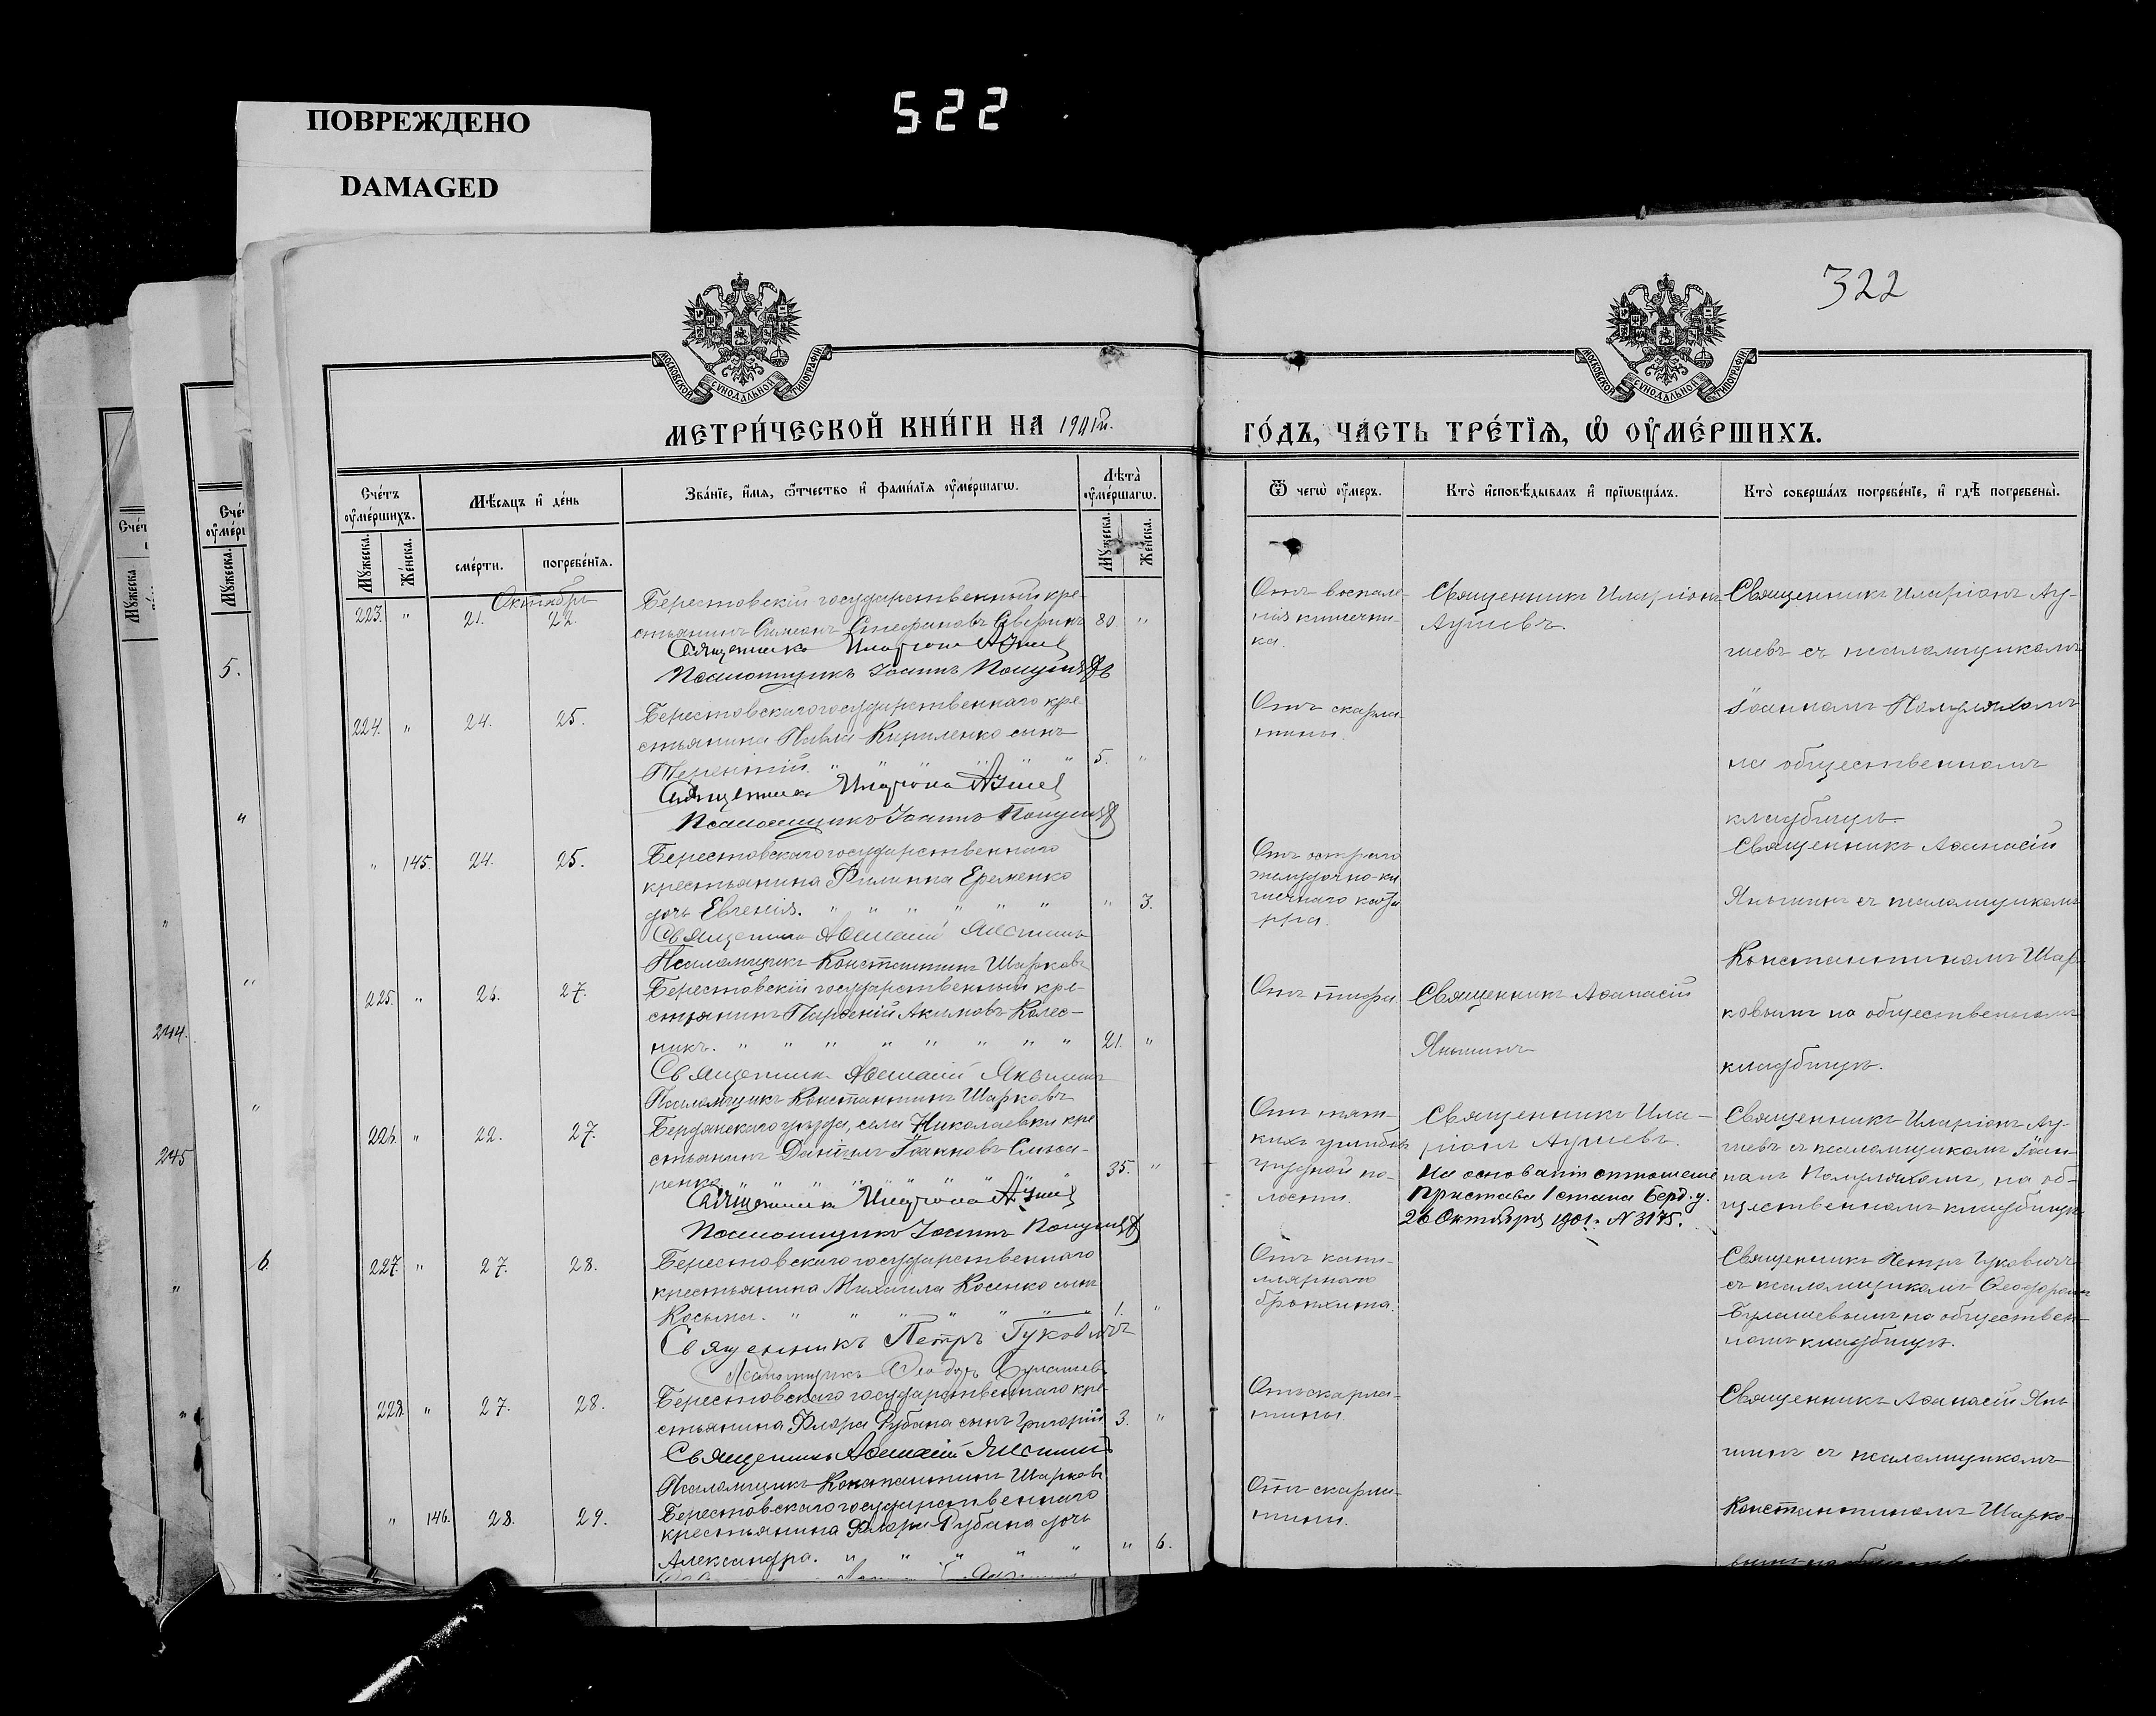 ПОВРЕЖДЕНО
DAMAGED
522
322
МОСКОВСКОЙ СѴНОДАЛЬНОЙ ТИПОГРАФІИ
МОСКОВСКОЙ СѴНОДАЛЬНОЙ ТИПОГРАФІИ
МЕТРИ́ЧЕСКОЙ КНИ́ГИ НА 1901й.
ГО́ДЪ, ЧА́СТЬ ТРЕ́ТІѦ, Ѽ ОУ҆МЕ́РШИХЪ.
Сче́тъ оу҆ме́ршихъ.
Мꙋ́жеска.
Же́нска.
Мѣ́сѧцъ и҆ де́нь
сме́рти.
погребе́нїѧ.
Зва́нїе, и҆́мѧ, ѻ҆́тчество и҆ фами́лїѧ оу҆ме́ршагѡ.
Лѣта̀ оу҆ме́ршагѡ.
Мꙋ́жеска.
Же́нска.
Ѿ чегѡ̀ оу҆́меръ.
Кто̀ и҆сповѣ́дывалъ и҆ прїѡбща́лъ.
Кто̀ соверша́лъ погребе́нїе, и҆ гдѣ̀ погребены̀.
Октябрь
223. " 21. 22.
Берестовскій государственный кре-
стьянинъ Симеонъ Стефановъ Сверинъ 80 "
Священникъ Иларіонъ
Псаломщикъ Іоаннъ
Отъ воспале-
нія кишечни-
ка.
Священникъ Иларіонъ
Священникъ Иларіонъ
съ псаломщикомъ
Іоанномъ
на общественномъ
кладбищѣ.
224. " 24. 25.
Берестовскаго государственнаго кре-
стьянина Павла Кириленко сынъ
Терентій. " " " " 5. "
Священникъ Иларіонъ
Псаломщикъ Іоаннъ
Отъ скарла-
тины.
" 145. 24. 25.
Берестовскаго государственнаго
крестьянина Филиппа Еременко
дочь Евгенія. " " " " " " " 3.
Священникъ Аѳанасій Якшинъ
Псаломщикъ Константинъ Шарковъ
Отъ остраго
желудочно-ки
шечнаго ката
рра.
Священникъ Аѳанасій
съ псаломщикомъ
Константиномъ Шар-
ковымъ на общественномъ
кладбищѣ.
225. " 26. 27.
Берестовскій государственный кре-
стьянинъ Парѳеній Акимовъ Колес-
никъ. " " " " " " " " 21. "
Священникъ Аѳанасій
Псаломщикъ Константинъ Шарковъ
Отъ тифа
Священникъ Аѳанасій
226. " 22. 27.
Бердянскаго уѣзда, села Николаевки кре
стьянинъ Даніилъ Іоанновъ Слюса-
ренко 35. "
Священникъ Иларіонъ
Псаломщикъ Іоаннъ
Отъ тяж-
кихъ ушибовъ
грудной по-
лости.
Священникъ Ила-
ріонъ
На основаніи отношенія
Пристава 1 стана Берд. у.
26 Октября 1901. N 3175.
Священникъ Иларіонъ
съ псаломщикомъ Іоан-
номъ на об-
щественномъ кладбищѣ.
227. " 27. 28.
Берестовскаго государственнаго
крестьянина Михаила Косенко сынъ
Косьма. " " " " " " " 1. "
Священникъ Петръ Гуковичъ
Псаломщикъ Ѳеодоръ Булашевъ
Отъ капи-
лярнаго
бронхита.
Священникъ Петръ Гуковичъ
съ псаломщикомъ Ѳеодоромъ
Булашевымъ на обществен-
номъ кладбищѣ.
228. " 27. 28.
Берестовскаго государственнаго кре-
стьянина Флора Рубана сынъ Григорій 3. "
Священникъ Аѳанасій
Псаломщикъ Константинъ Шарковъ
Отъ скарла-
тины.
Священникъ Аѳанасій
съ псаломщикомъ
Константиномъ Шарко-
" 146. 28. 29.
Берестовскаго государственнаго
крестьянина Флора Рубана дочь
Александра. " " " " " " 6.
Отъ скарла-
тины.
5.
"
"
244.
"
245
6.
"
"